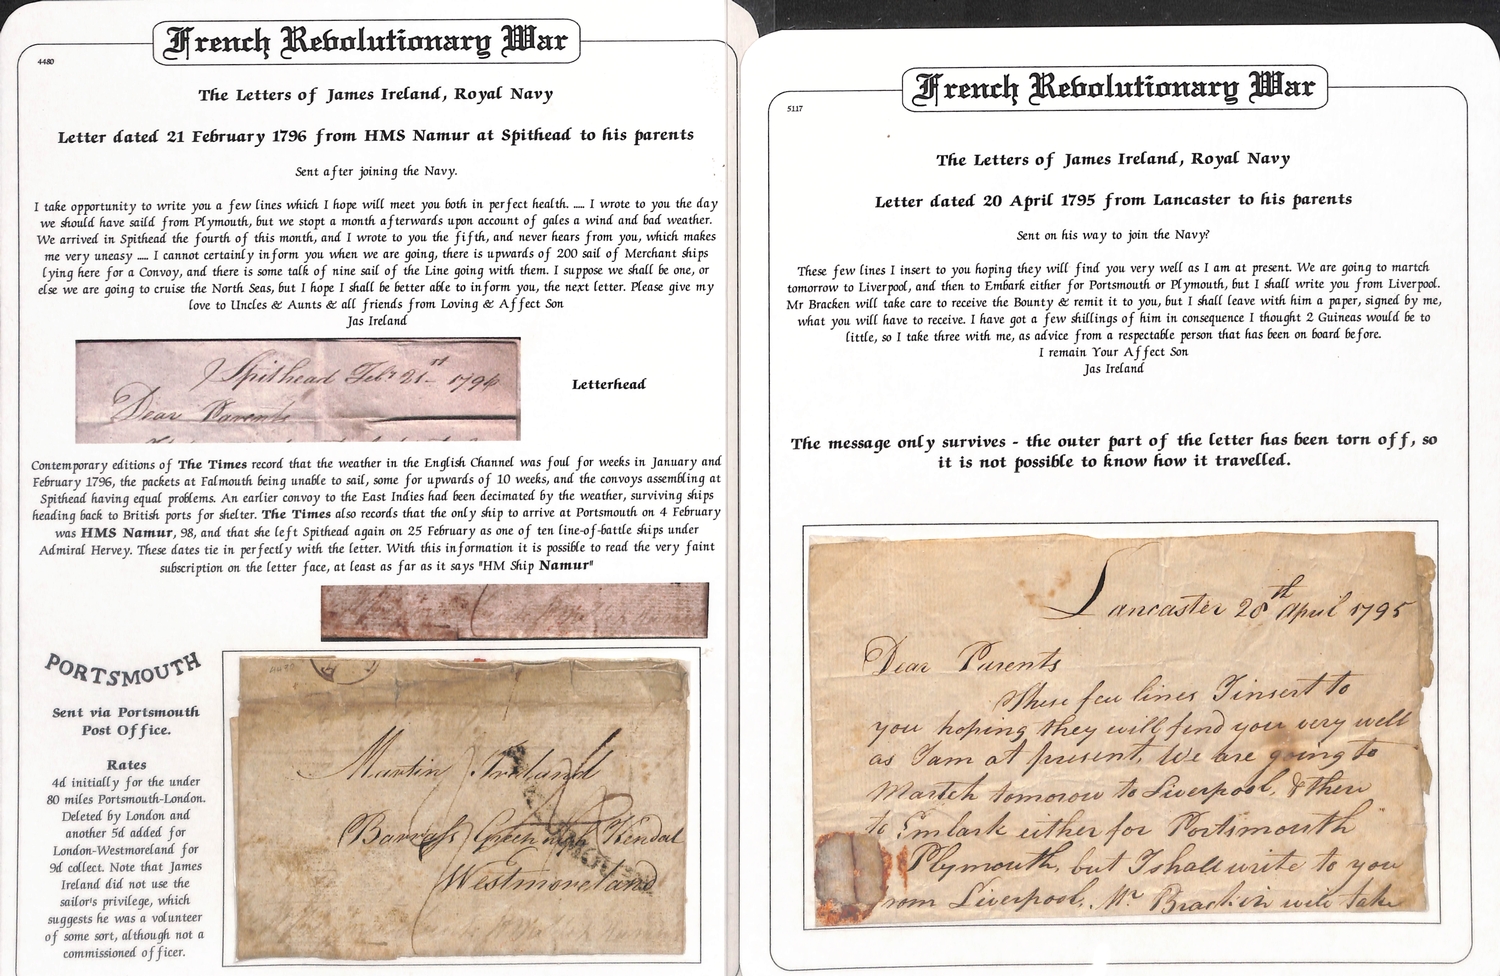 French Revolutionary War
4480
The Letters of James Ireland, Royal Navy
Letter dated 21 February 1796 from HMS Namur at Spithead to his parents
Sent after joining the Navy.
I take opportunity to write you a few lines which I hope will meet you both in perfect health. ..... I wrote to you the day
we should have saild from Plymouth, but we stopt a month afterwards upon account of gales a wind and bad weather.
We arrived in Spithead the fourth of this month, and I wrote to you the fifth, and never hears from you, which makes
me very uneasy ..... I cannot certainly inform you when we are going, there is upwards of 200 sail of Merchant ships
lying here for a Convoy, and there is some talk of nine sail of the Line going with them. I suppose we shall be one, or
else we are going to cruise the North Seas, but I hope I shall be better able to inform you, the next letter. Please give my
love to Uncles & Aunts & all friends from Loving & Affect Son
Jas Ireland
Spithead Febr 21st 1796
Dear Parents
Letterhead
Contemporary editions of The Times record that the weather in the English Channel was foul for weeks in January and
February 1796, the packets at Falmouth being unable to sail, some for upwards of 10 weeks, and the convoys assembling at
Spithead having equal problems. An earlier convoy to the East Indies had been decimated by the weather, surviving ships
heading back to British ports for shelter. The Times also records that the only ship to arrive at Portsmouth on 4 February
was HMS Namur, 98, and that she left Spithead again on 25 February as one of ten line-of-battle ships under
Admiral Hervey. These dates tie in perfectly with the letter. With this information it is possible to read the very faint
subscription on the letter face, at least as far as it says "HM Ship Namur"
PORTSMOUTH
Sent via Portsmouth
Post Office.
Rates
4d initially for the under
80 miles Portsmouth-London.
Deleted by London and
another 5d added for
London-Westmoreland for
9d collect. Note that James
Ireland did not use the
sailor's privilege, which
suggests he was a volunteer
of some sort, although not a
commissioned officer.
4480
Martin Ireland
Kendal
Westmoreland
French Revolutionary War
5117
The Letters of James Ireland, Royal Navy
Letter dated 20 April 1795 from Lancaster to his parents
Sent on his way to join the Navy?
These few lines I insert to you hoping they will find you very well as I am at present. We are going to martch
tomorrow to Liverpool, and then to Embark either for Portsmouth or Plymouth, but I shall write you from Liverpool.
Mr Bracken will take care to receive the Bounty & remit it to you, but I shall leave with him a paper, signed by me,
what you will have to receive. I have got a few shillings of him in consequence I thought 2 Guineas would be to
little, so I take three with me, as advice from a respectable person that has been on board before.
I remain Your Affect Son
Jas Ireland
The message only survives - the outer part of the letter has been torn off, so
it is not possible to know how it travelled.
Lancaster 20th April 1795
Dear Parents
These few lines I insert to
you hoping they will find you very well
as I am at present, We are going to
Martch tomorow to Liverpool, & then
to Embark either for Portsmouth
Plymouth, but I shall write to you
rom Liverpool, Mr Bracken will take